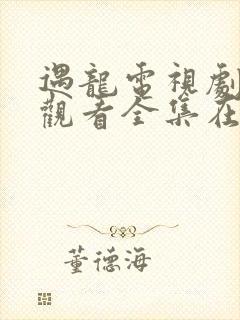 遇龍電視劇
觀看全集在
董德海